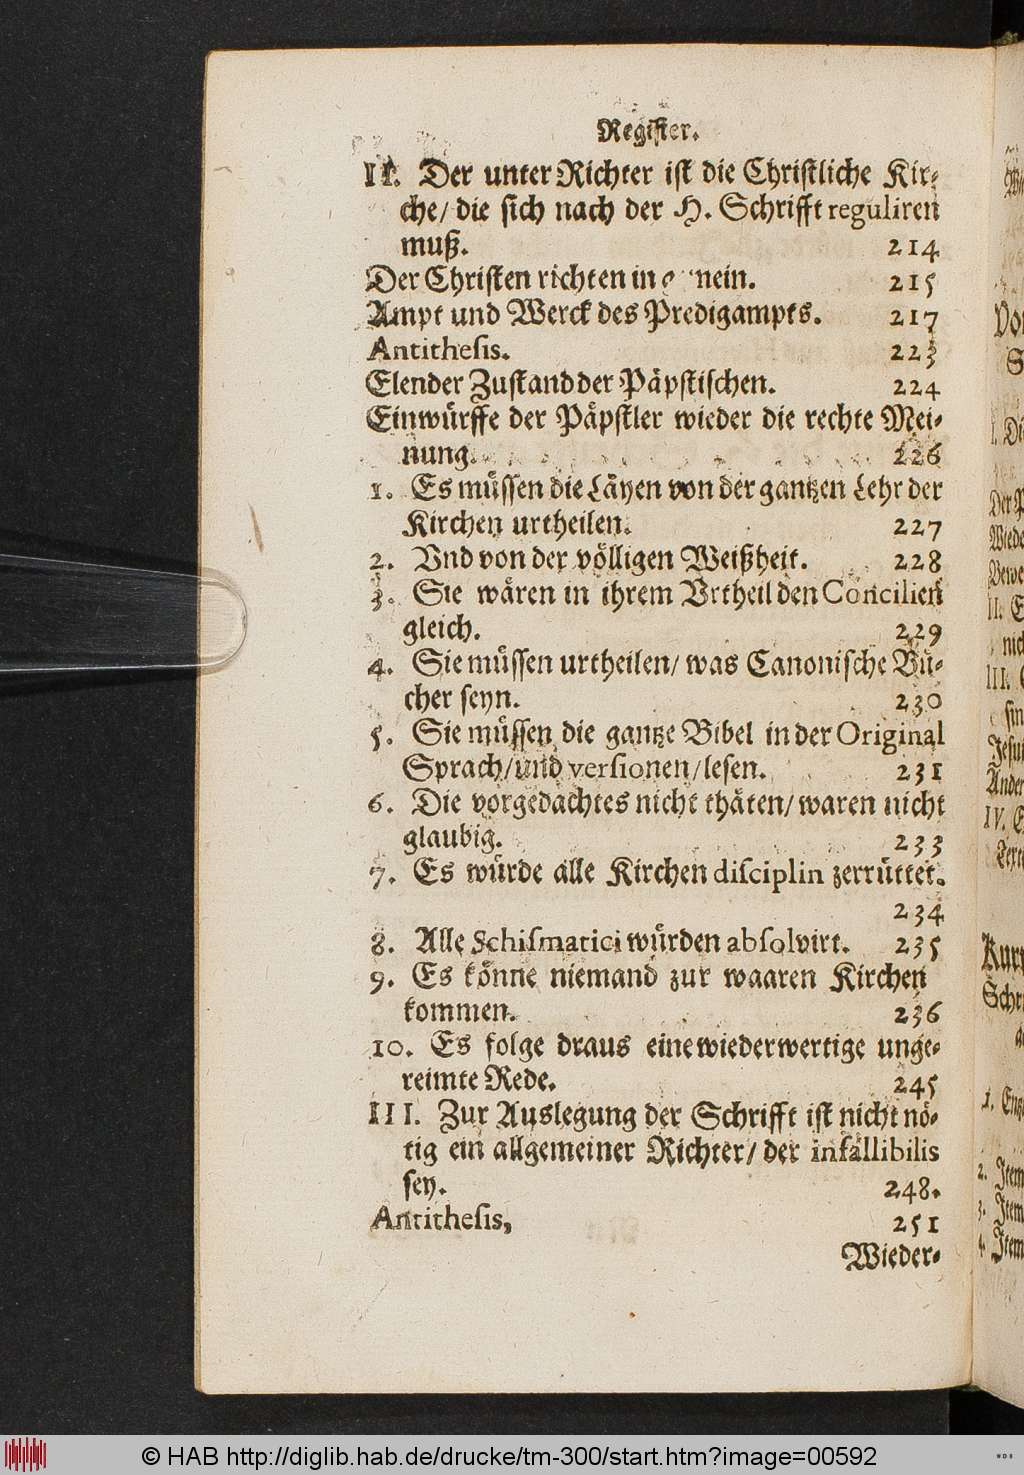 Register.
II. Der unter Richter ist die Christliche Kir-
che/ die sich nach der H. Schrifft reguliren
muß. 214
Der Christen richten in nein. 215
Ampt und Werck des Predigampts. 217
Antithesis. 223
Elender Zustand der Päpstischen. 224
Einwürffe der Päpstler wieder die rechte Mei-
nung. 226
1. Es müssen die Läyen von der gantzen Lehr der
Kirchen urtheilen. 227
2. Vnd von der völligen Weißheit. 228
3. Sie wären in ihrem Vrtheil den Concilien
gleich. 229
4. Sie müssen urtheilen/ was Canonische Bü-
cher seyn. 230
5. Sie müssen die gantze Bibel in der Original
Sprach/und versionen/lesen. 231
6. Die vorgedachtes nicht thäten/ waren nicht
glaubig. 233
7. Es würde alle Kirchen disciplin zerrüttet.
234
8. Alle Schismatici würden absolvirt. 235
9. Es könne niemand zur waaren Kirchen
kommen. 236
10. Es folge draus eine wiederwertige unge-
reimte Rede. 245
III. Zur Auslegung der Schrifft ist nicht nö-
tig ein allgemeiner Richter/ der infallibilis
sey. 248.
Antithesis, 251
Wieder-
© HAB http://diglib.hab.de/drucke/tm-300/start.htm?image=00592